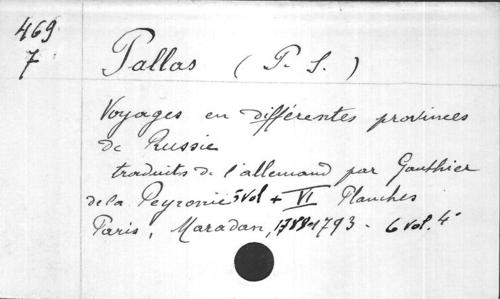 469
7
Pallas (P. S.)
Voyages en différentes provinces
de Russie
traduits de l'allemand par Gauthier
de la Peyronie 5 vol + VI Planches
Paris, Maradan, 1789-1793 - 6 vol. 4°